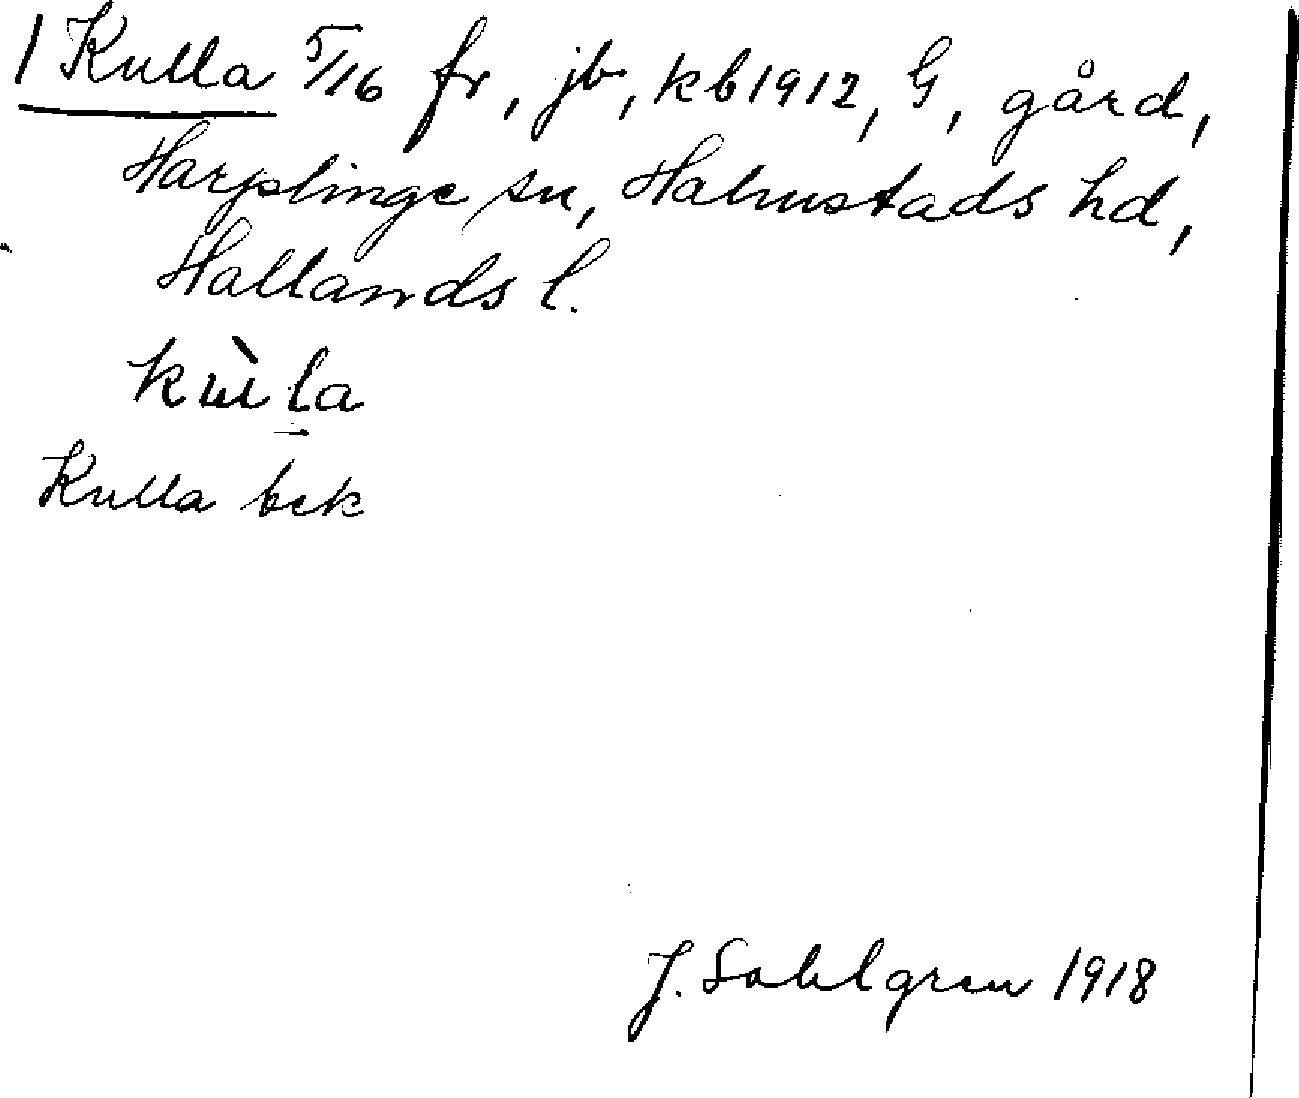 1 Kulla 5/16 fr, jb, kb 1912, G, gård,
Harplinge sn, Halmstads hd,
Hallands l.
kɯ̀la
Kulla bek
J. Sahlgren 1918